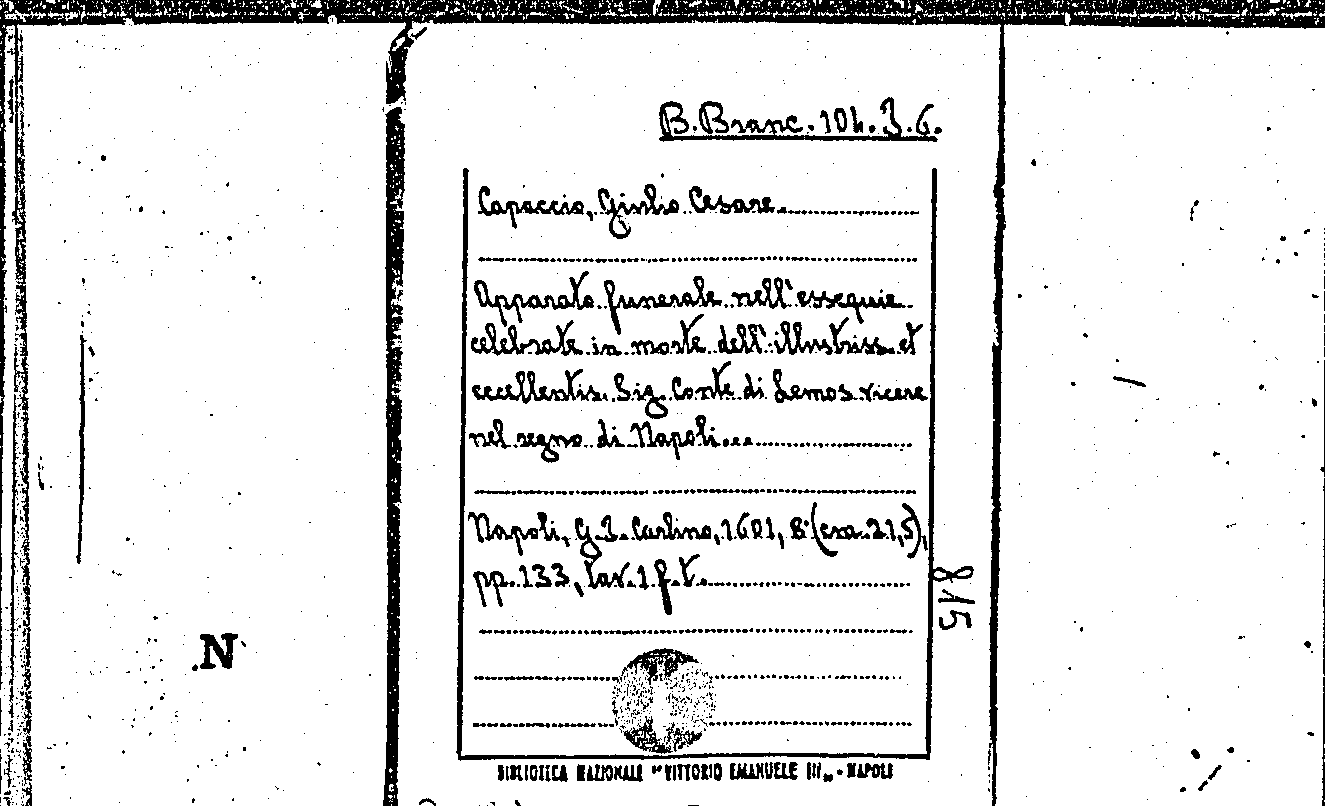 B. Branc. 104. J. 6.
Capaccio, Giulio Cesare.
Apparato funerale nell'essequie
celebrate in morte dell'illustriss. et
eccellentis. Sig. Conte di Lemos vicere
nel regno di Napoli...
Napoli, G. J. Carlino, 1601, 8° (cm. 21,5),
pp. 133, tav. 1 f. t.
815
N
BIBLIOTECA NAZIONALE "VITTORIO EMANUELE III" - NAPOLI